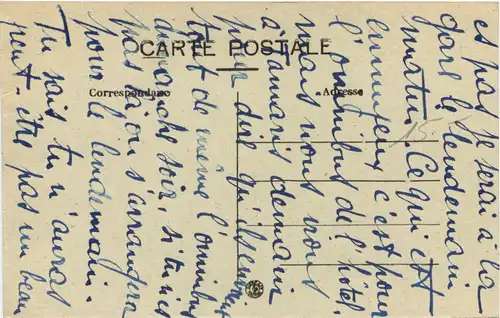 CARTE POSTALE
Correspondance
Adresse
15
et pas je serai à la
gare le lendemain
matin. Ce qui est
ennuyeux c'est pour
l'omnibus de l'hôtel.
nous nous
demain
pour dire qu'ils envoient
tout de même l'omnibus
dimanche soir, si tu n'es
pas là on s'arrangera
pour le lendemain.
Tu sais tu n'auras
peut-être pas un beau